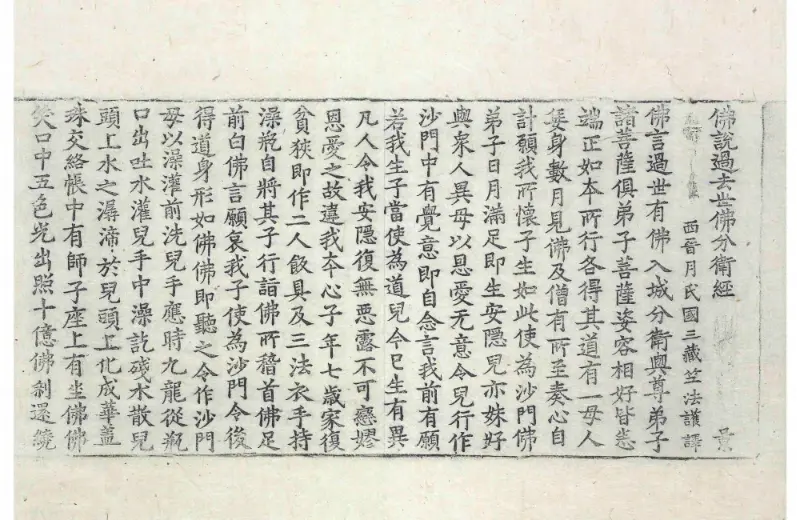 佛說過去世佛分衛經
西晉月氏國三藏竺法護譯
佛言過世有佛入城分衛與尊弟子
諸菩薩俱弟子菩薩姿容相好皆悉
端正如本所行各得其道有一母人
妊身數月見佛及僧有所至奏心自
計願我所懷子生如此使為沙門佛
弟子日月滿足即生安隱兒亦姝好
與衆人異母以恩愛无意令兒行作
沙門中有覺意即自念言我前有願
若我生子當使為道兒今已生有異
凡人令我安隱復無惡露不可戀嫪
恩愛之故違我夲心子年七歲家復
貧狹即作二人飲具及三法衣手持
澡瓶自將其子行詣佛所稽首佛足
前白佛言願哀我子使為沙門令後
得道身形如佛佛即聽之令作沙門
母以澡灌前洗兒手應時九龍從瓶
口出吐水灌兒手中澡訖殘水散兒
頭上水之潺渧於兒頭上化成華蓋
珠交絡帳中有師子座上有坐佛佛
笑口中五色光出照十億佛剎還繞